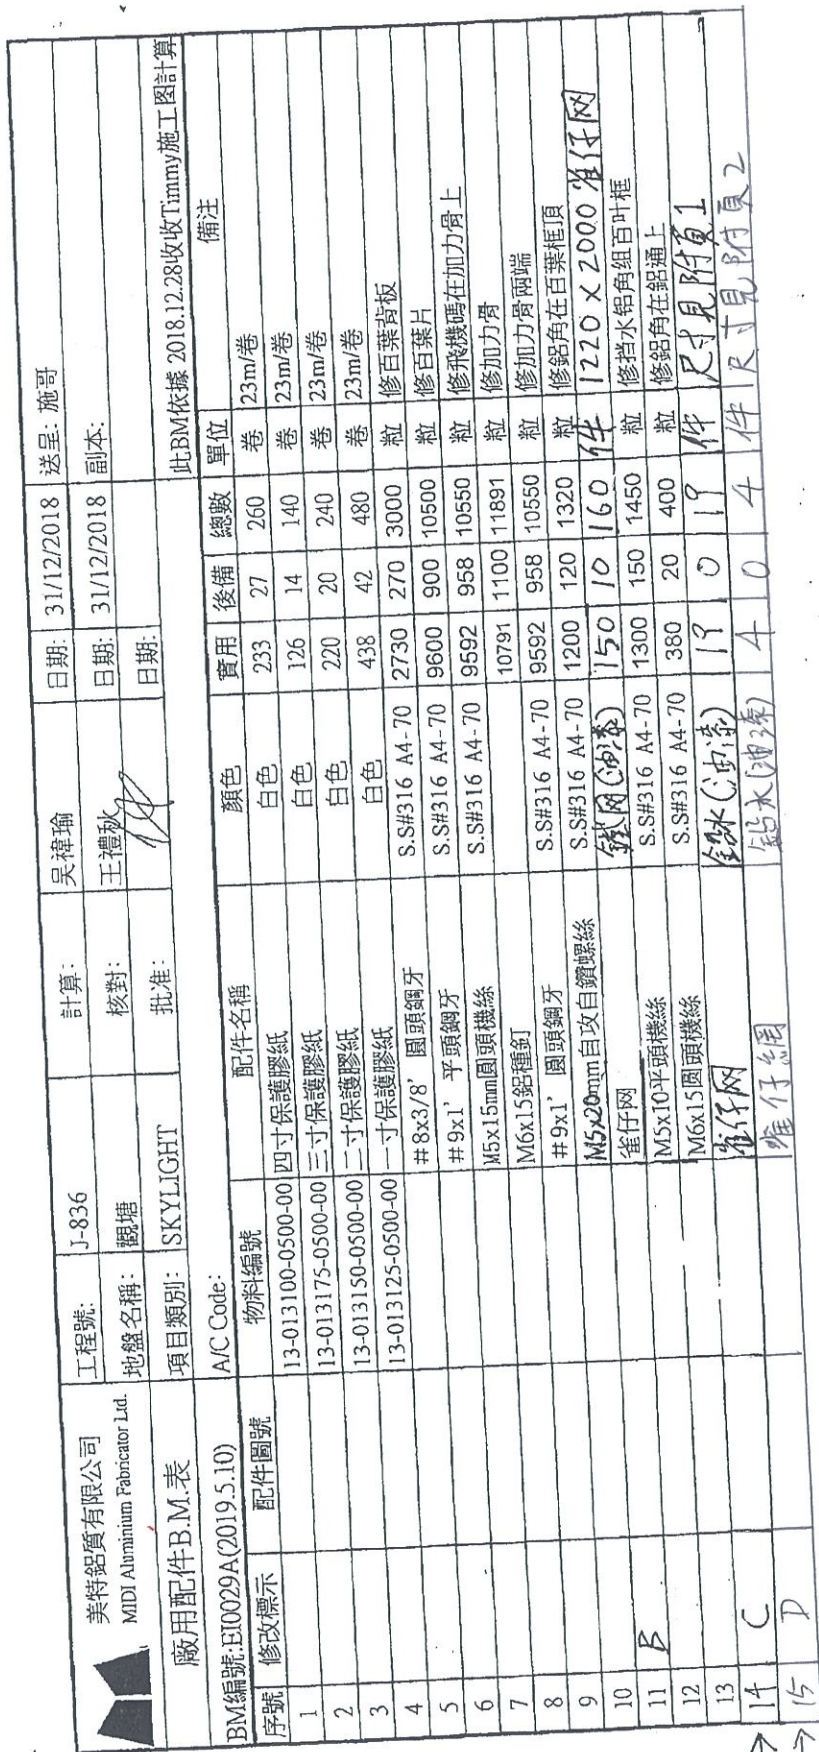 美特鋁質有限公司
MIDI Aluminium Fabricator Ltd.
工程號: J-836 計算: 吴禕瑜 日期: 31/12/2018 送呈: 施哥
地盤名稱: 觀塘 核對: 王禮秋 日期: 31/12/2018 副本:
廠用配件B.M.表 項目類別: SKYLIGHT 批准: 日期:
BM編號:EI0029A(2019.5.10) A/C Code: 此BM依據 2018.12.28收收Timmy施工图計算
序號 修改標示 配件圖號 物料編號 配件名稱 顏色 實用 後備 總數 單位 備注
1 13-013100-0500-00 四寸保護膠紙 白色 233 27 260 卷 23m/卷
2 13-013175-0500-00 三寸保護膠紙 白色 126 14 140 卷 23m/卷
3 13-013150-0500-00 二寸保護膠紙 白色 220 20 240 卷 23m/卷
4 13-013125-0500-00 一寸保護膠紙 白色 438 42 480 卷 23m/卷
5 #8x3/8' 圓頭鋼牙 S.S#316 A4-70 2730 270 3000 粒 修百葉背板
6 #9x1' 平頭鋼牙 S.S#316 A4-70 9600 900 10500 粒 修百葉片
7 M5x15mm圓頭機絲 S.S#316 A4-70 9592 958 10550 粒 修飛機碼在加力骨上
8 M6x15鋁種釘 10791 1100 11891 粒 修加力骨
9 #9x1' 圓頭鋼牙 S.S#316 A4-70 9592 958 10550 粒 修加力骨兩端
10 M5x20mm自攻自鑽螺絲 S.S#316 A4-70 1200 120 1320 粒 修鋁角在百葉框頂
11 B 雀仔网 鐵网(油漆) 150 10 160 件 1220 x 2000 雀仔网
12 M5x10平頭機絲 S.S#316 A4-70 1300 150 1450 粒 修挡水铝角组百叶框
13 M6x15圆頭機絲 S.S#316 A4-70 380 20 400 粒 修鋁角在鋁通上
14 C 雀仔网 鋁水(油漆) 19 0 19 件 尺寸見附頁1
15 D 雀仔網 鋁水(油漆) 4 0 4 件 尺寸見附頁2